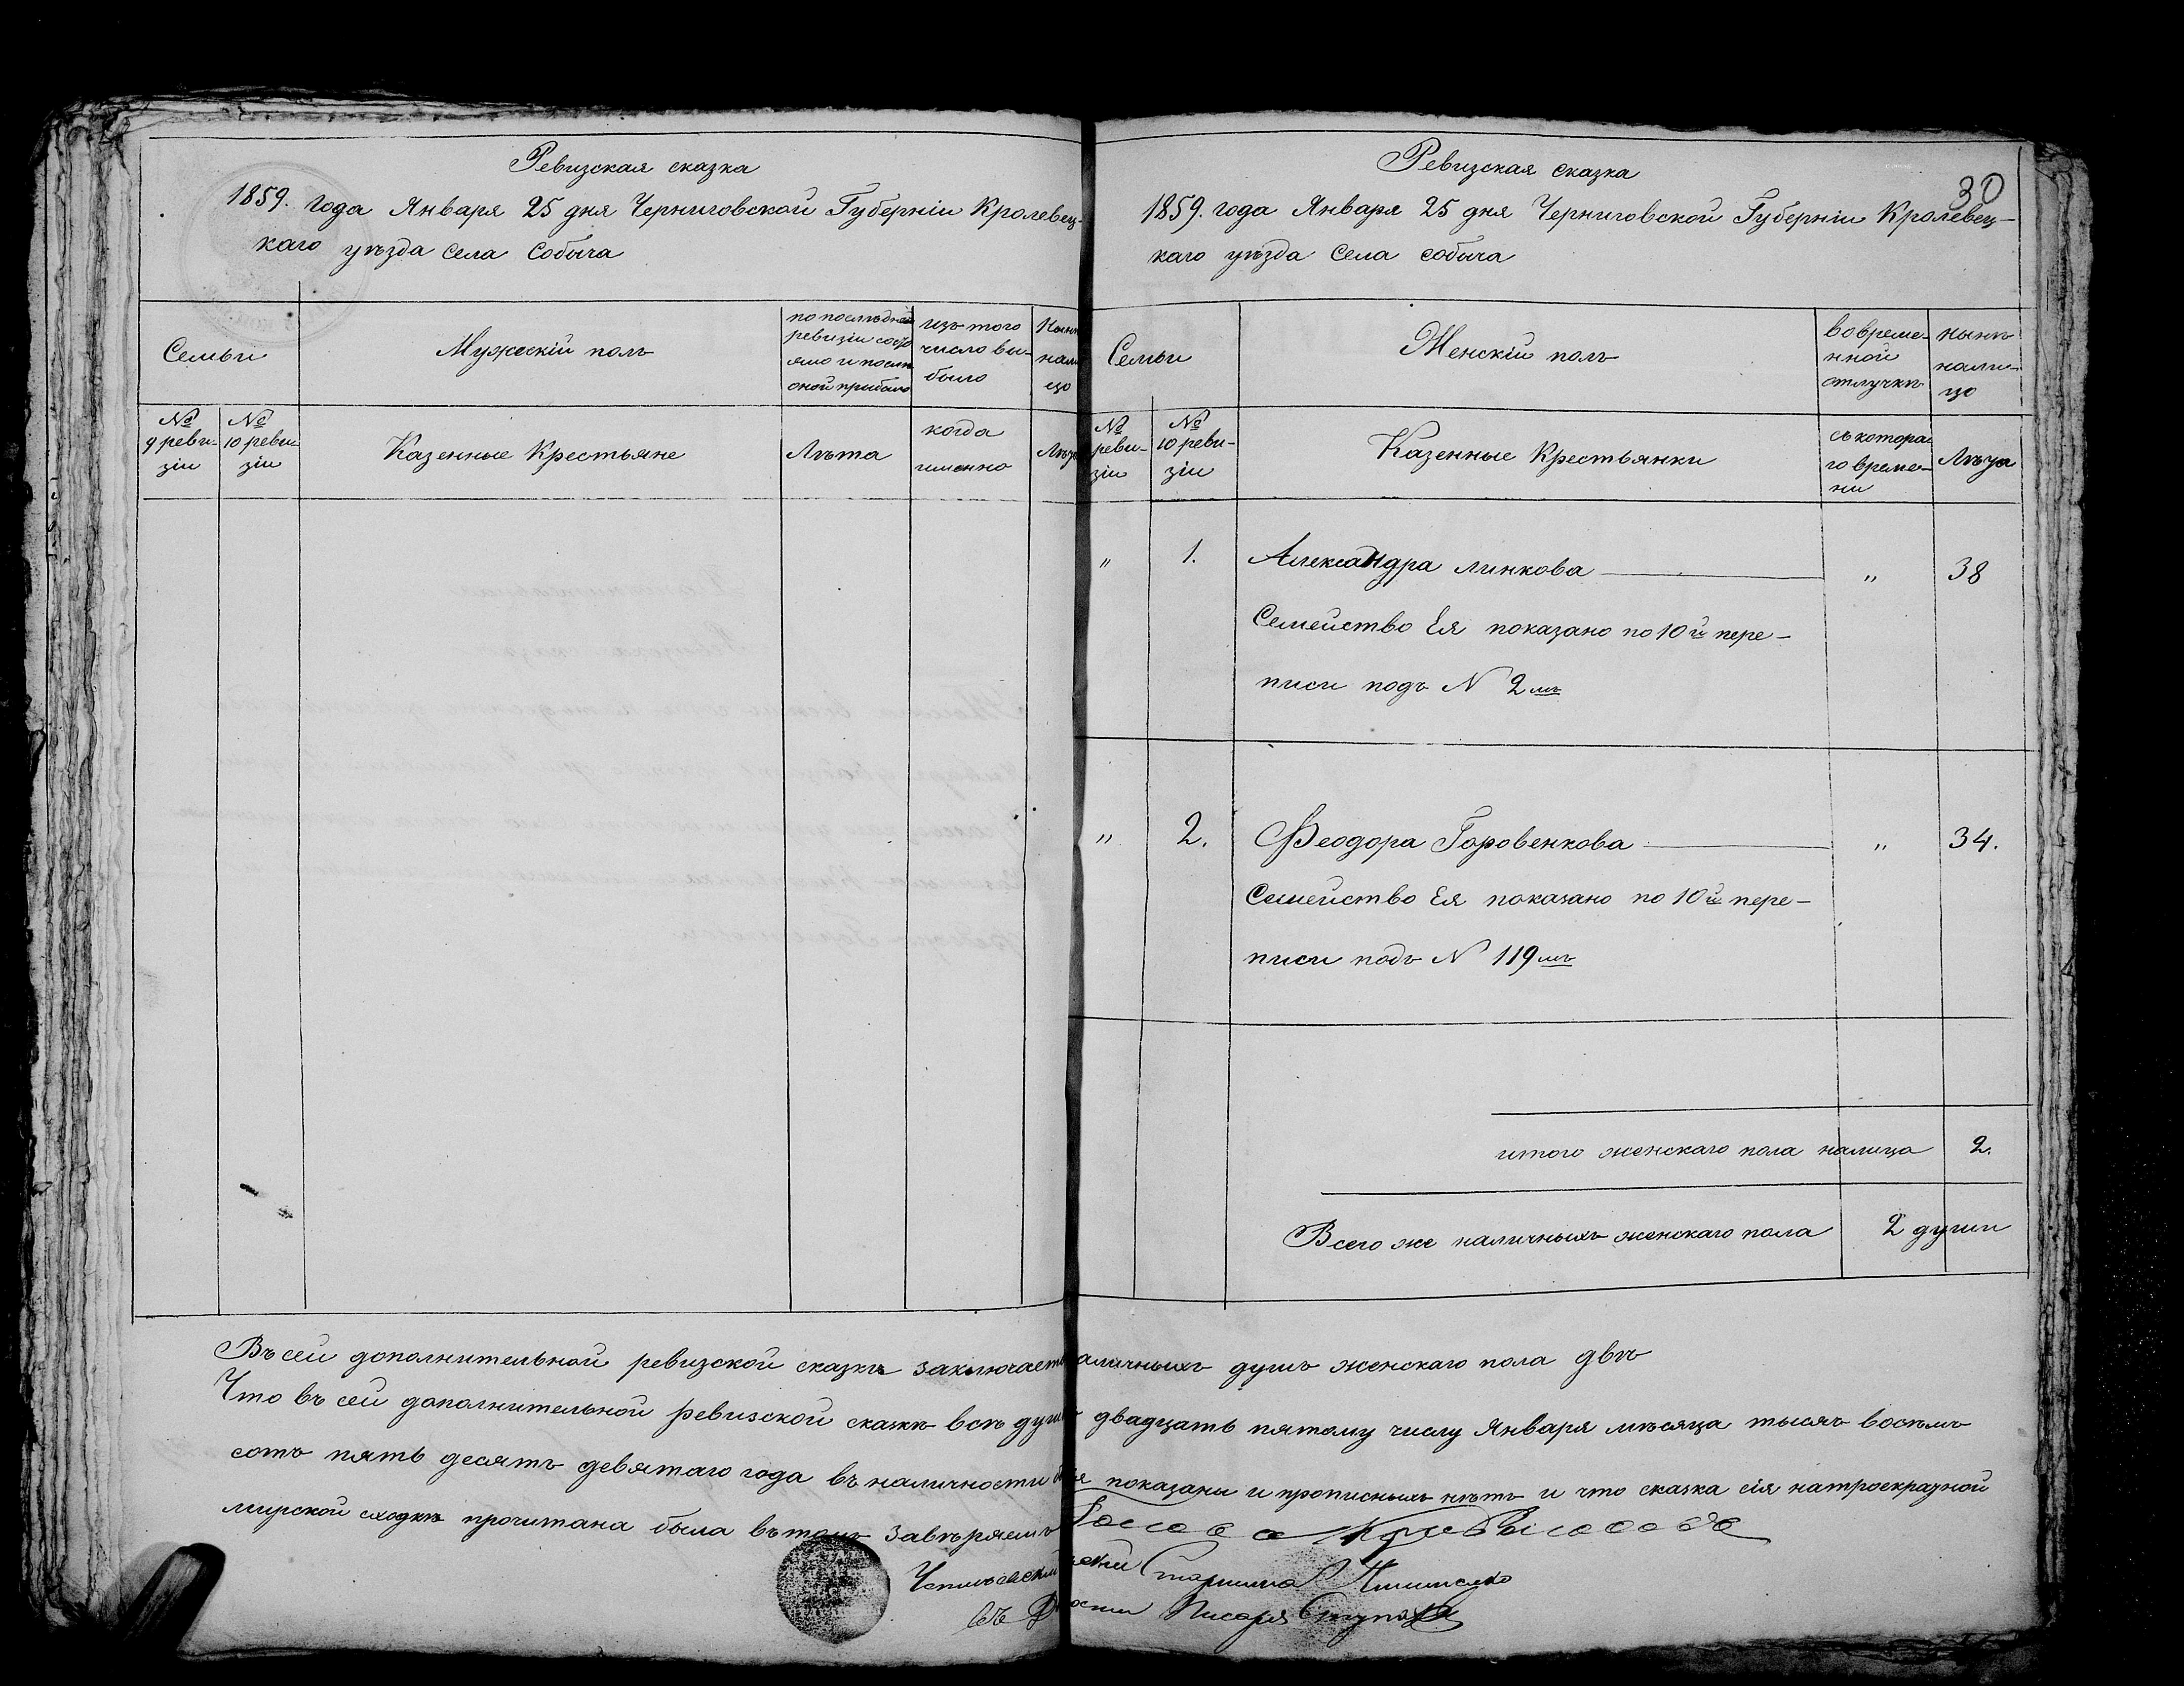 Ревизская сказка
1859. года Января 25 дня Черниговской Губерніи Кролевец-
каго уѣзда села Собыча
Семьи
Мужескій полъ
по послѣдней
ревизіи состо
яло и послѣ
оной прибыло
изъ того
число вы-
было
Нынѣ
нали
цо
№
9 реви-
зіи
№
10 реви-
зіи
Казенные Крестьяне
Лѣта
когда
именно
Лѣта
Ревизская сказка
30
1859. года Января 25 дня Черниговской Губерніи Кролевец-
каго уѣзда Села собыча
Семьи
Женскій полъ
во време-
нной
отлучкѣ
нынѣ
нали-
цо
№
реви-
зіи
№
10 реви-
зіи
Казенные Крестьянки
съ котора-
го време-
ни
Лѣта
" 1. Александра линкова " 38
Семейство Ея показано по 10й пере-
писи подъ N 2мъ
" 2. Феодора Горовенкова " 34.
Семейство Ея показано по 10й пере-
писи подъ N 119мъ
итого женскаго пола налицо 2.
Всего же наличныхъ женскаго пола 2 души
Въ сей дополнительной ревизской сказкѣ заключает аличныхъ душъ женскаго пола двѣ
Что въ сей дополнительной ревизской сказкѣ всѣ душ двадцать пятому числу Января мѣсяца тысяч восемь
сотъ пять десятъ девятаго года въ наличности показаны и прописныхъ нѣтъ и что сказка сія на троекрадной
мирской сходкѣ прочитана была въ томъ завѣряемъ
Голова
Старшина
Писаря